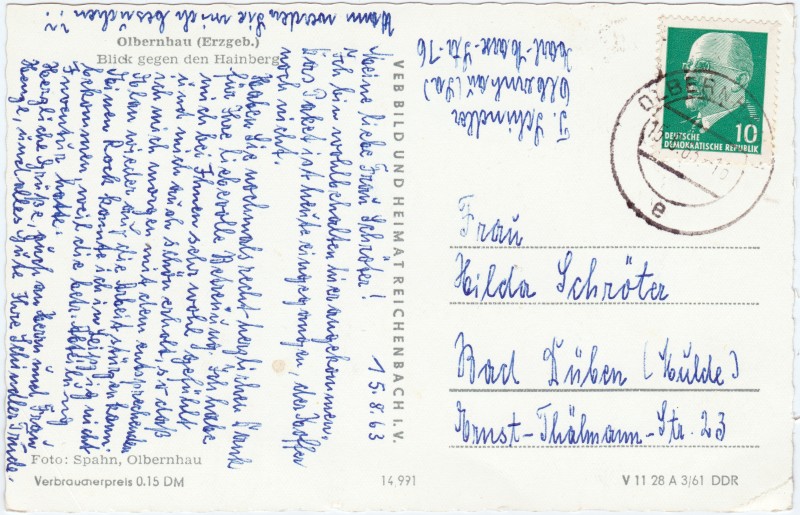 Olbernhau (Erzgeb.)
Blick gegen den Hainberg
15.8.63
Meine liebe Frau Schröter!
Ich bin wohlbehalten hier angekommen.
Das Paket ist heute eingegangen, der Koffer
noch nicht.
Haben Sie nochmals recht herzlichen Dank
für Ihre liebevolle Betreuung. Ich habe
mich bei Ihnen sehr wohl gefühlt
und mich auch schön erholt, so daß
ich mich morgen mit dem entsprechenden
Elan wieder auf die Arbeit stürzen kann.
Meinen Rock konnte ich in Leipzig nicht
bekommen, weil die betr. Abteilung
Inventur hatte.
Herzliche Grüße, auch an Herrn und Frau
Henze, und alles Gute Ihre Schindler Trude.
Wann werden Sie mich besuchen??
Foto: Spahn, Olbernhau
Verbraucherpreis 0.15 DM
VEB BILD UND HEIMAT REICHENBACH I. V.
14,991
T. Schindler
Olbernhau (Sa)
Karl-Marx-Str. 76
OLBERNHAU
e
10
DEUTSCHE
DEMOKRATISCHE REPUBLIK
Frau
Hilda Schröter
Bad Düben (Mulde)
Ernst-Thälmann-Str. 23
V 11 28 A 3/61 DDR